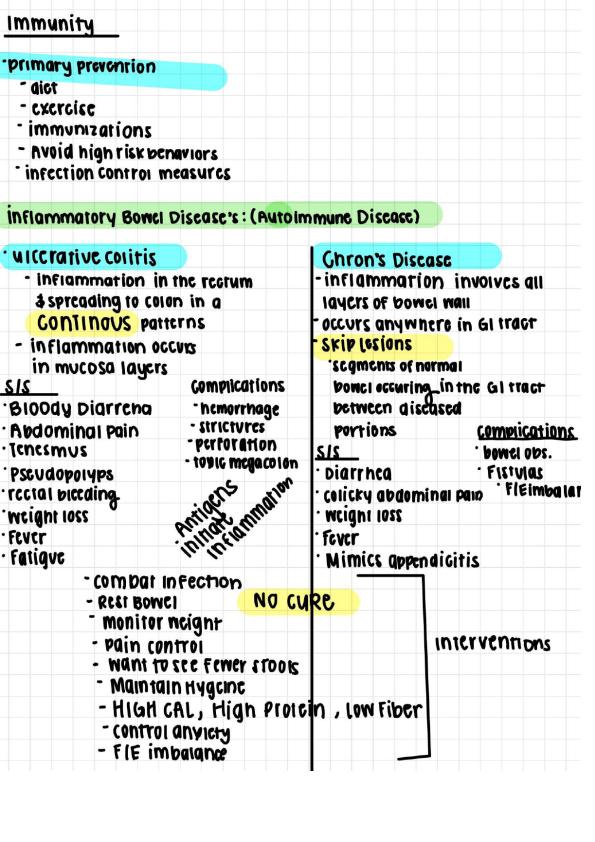 Immunity
·primary prevention
- diet
- exercise
- immunizations
- Avoid high risk behaviors
- infection control measures
inflammatory Bowel Disease's: (AutoImmune Disease)
· ulcerative colitis
- Inflammation in the rectum
& spreading to colon in a
continous patterns
- inflammation occurs
in mucosa layers
S/S
·Bloody Diarrhea
·Abdominal Pain
·Tenesmus
·Pseudopolyps
·rectal bleeding
·weight loss
·Fever
·Fatigue
complications
·hemorrhage
·strictures
·perforation
·toxic megacolon
·Antigens
initiate
inflammation
Chron's Disease
-inflammation involves all
layers of bowel wall
-occurs anywhere in GI tract
·skip lesions
·segments of normal
bowel occuring in the GI tract
between diseased
portions
complications
·bowel obs.
·Fistulas
·F/E imbalan
S/S
·Diarrhea
·colicky abdominal pain
·weight loss
·Fever
·Mimics appendicitis
-combat infection
-Rest Bowel
NO CURE
-monitor weight
-pain control
-want to see fewer stools
-Maintain Hygeine
-HIGH CAL, High Protein, Low Fiber
-control anxiety
-F/E imbalance
interventions